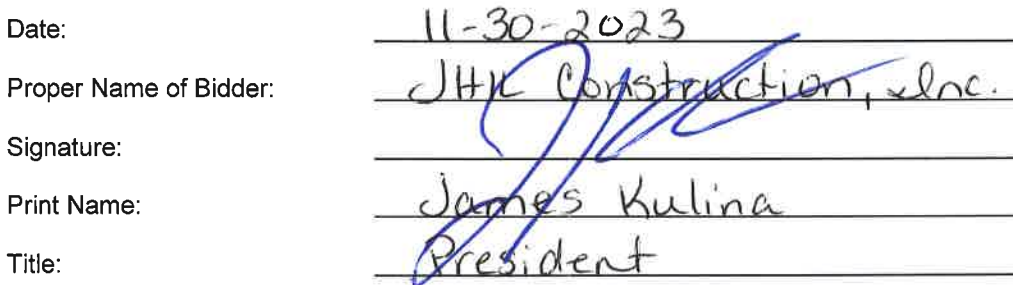 Date: 11-30-2023
Proper Name of Bidder: JHK Construction, Inc.
Signature:
Print Name: James Kulina
Title: President